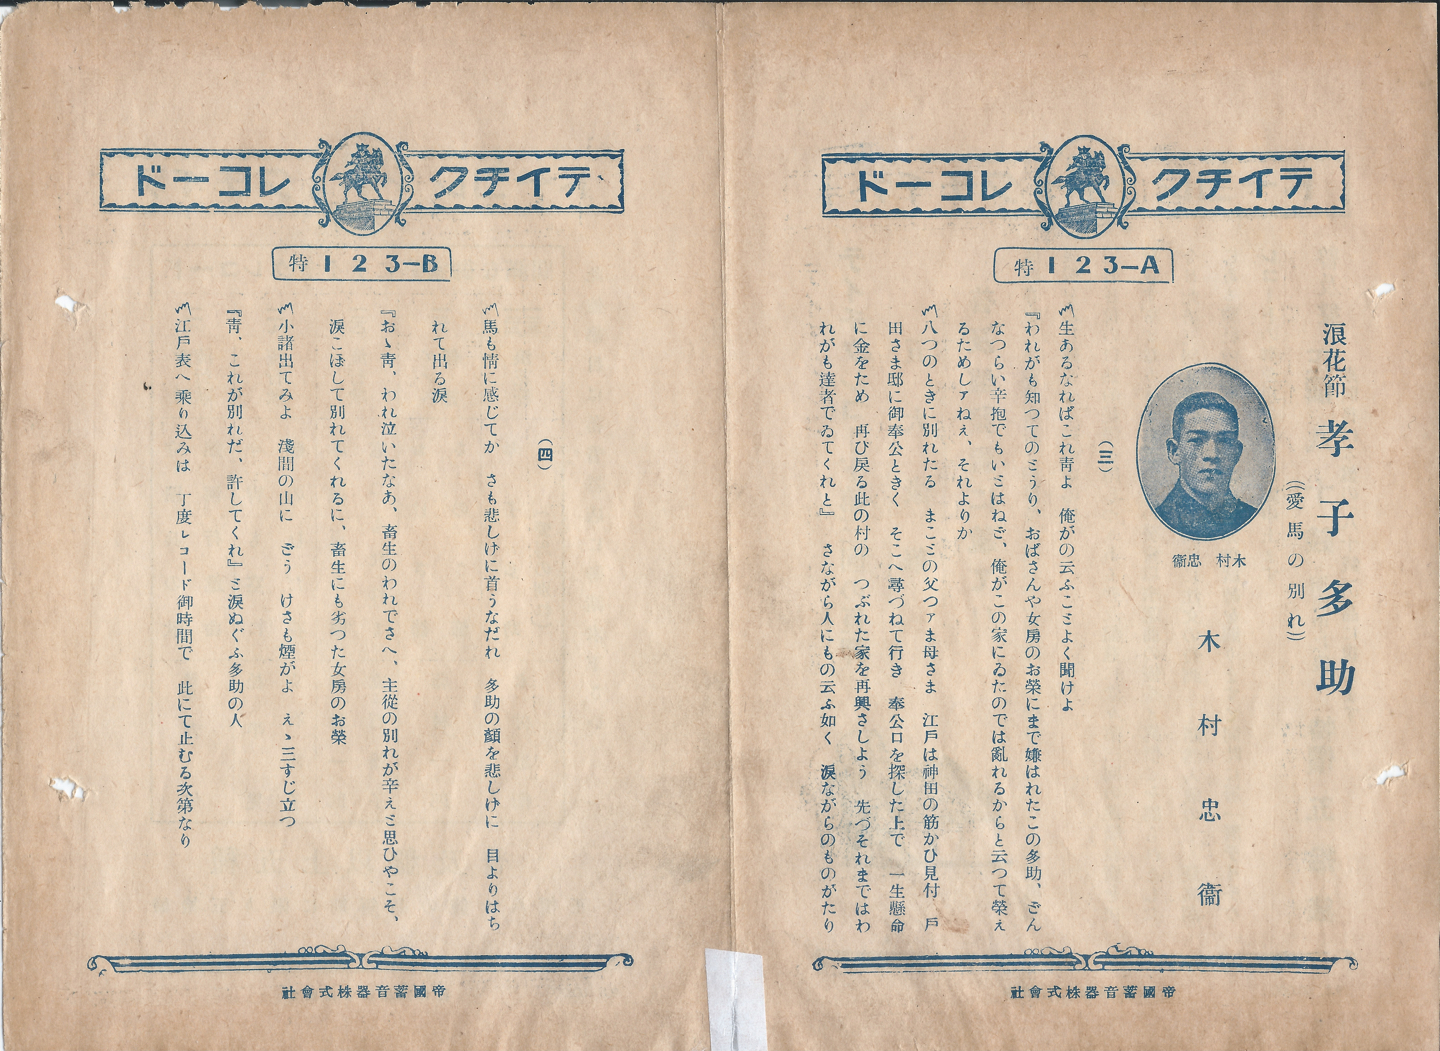 テイチクレコード
特123—A
浪花節 孝子多助
(愛馬の別れ)
木村忠衞
木村忠衞
(三)
〽生あるなればこれ靑よ 俺がの云ふことよく聞けよ
『われがも知つてのとうり、おばさんや女房のお榮にまで嫌はれたこの多助、どん
なつらい辛抱でもいとはねど、俺がこの家にゐたのでは亂れるからと云つて榮え
るためしァねぇ、それよりか
〽八つのときに別れたる まことの父つァま母さま 江戶は神田の筋かひ見付 戶
田さま邸に御奉公ときく そこへ尋づねて行き 奉公口を探した上で 一生懸命
に金をため 再び戾る此の村の つぶれた家を再興さしよう 先づそれまではわ
れがも達者でゐてくれと』 さながら人にもの云ふ如く 淚ながらのものがたり
帝國蓄音器株式會社
テイチクレコード
特123—B
(四)
〽馬も情に感じてか さも悲しげに首うなだれ 多助の顏を悲しげに 目よりはち
れて出る淚
『おゝ靑、われ泣いたなあ、畜生のわれでさへ、主從の別れが辛ぇと思ひやこそ、
淚こぼして別れてくれるに、畜生にも劣つた女房のお榮
〽小諸出てみよ 淺間の山に どう けさも煙がよ えゝ三すじ立つ
『靑、これが別れだ、許してくれ』と淚ぬぐふ多助の人
〽江戶表へ乘り込みは 丁度レコード御時間で 此にて止むる次第なり
帝國蓄音器株式會社